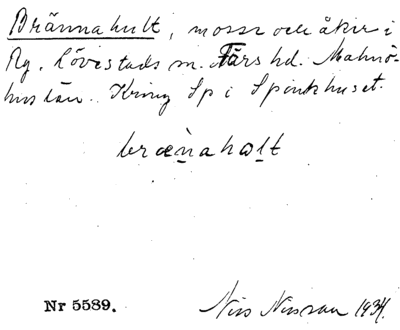 Brännahult, mosse och åker i
Rg. Lövestads sn. Färs hd. Malmö-
hus län. Kring Sp i Spinkhuset.
brænahalt
Nr 5589. Nils Nilsson 1934.